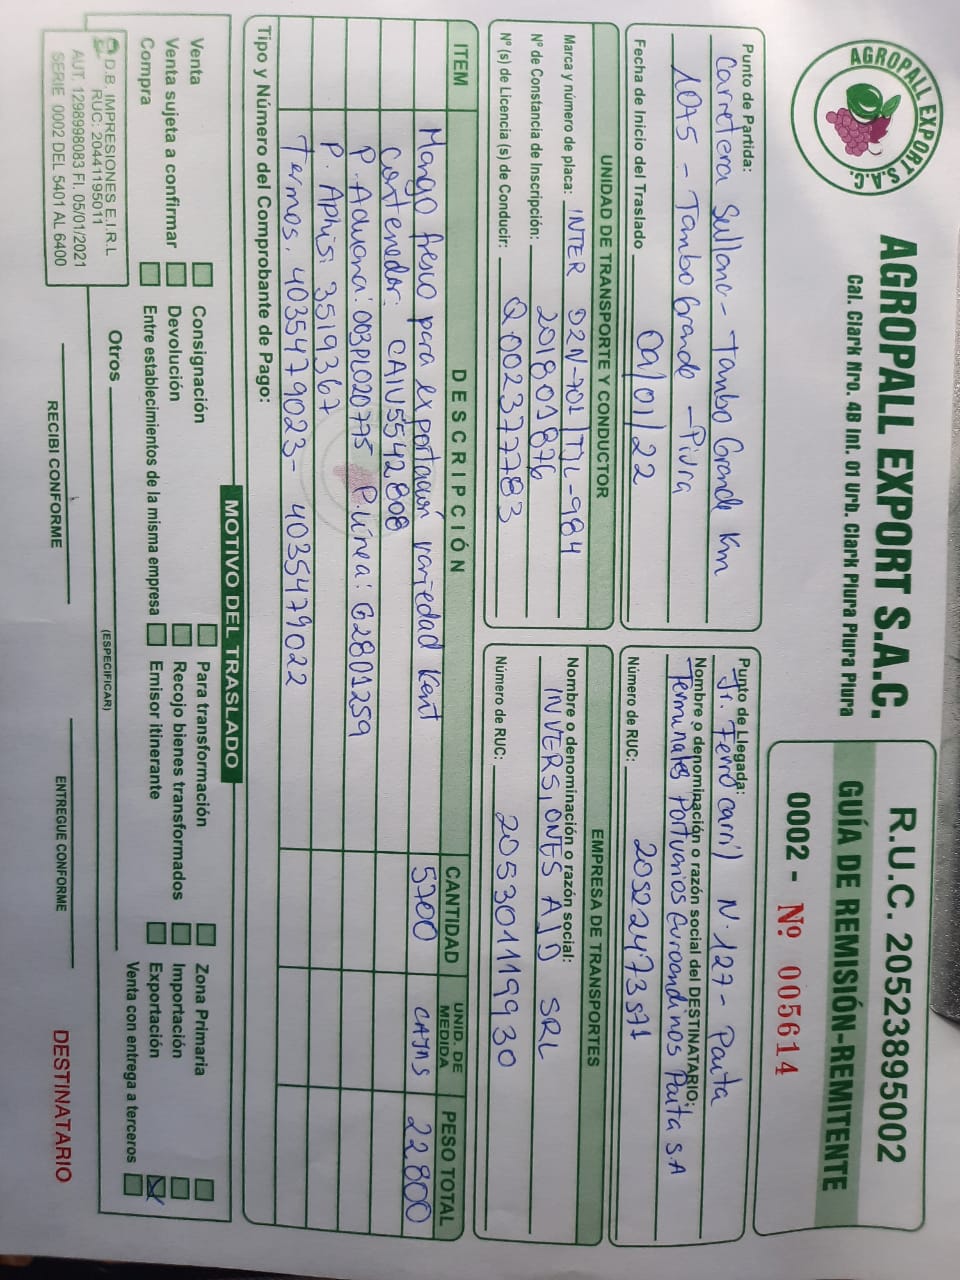 AGROPALL EXPORT S.A.C.
AGROPALL EXPORT S.A.C.
Cal. Clark Nro. 48 Int. 01 Urb. Clark Piura Piura Piura
R.U.C. 20523895002
GUÍA DE REMISIÓN-REMITENTE
0002 - Nº 005614
Punto de Partida:
Carretera Sullana - Tambo Grande Km
1075 - Tambo Grande - Piura
Fecha de Inicio del Traslado 09/01/22
Punto de Llegada:
Jr. Ferrocarril N. 127 - Paita
Nombre o denominación o razón social del DESTINATARIO:
Terminales Portuarios Euroandinos Paita S.A
Número de RUC: 20522473571
UNIDAD DE TRANSPORTE Y CONDUCTOR
Marca y número de placa: INTER D2N-701/TJL-984
Nº de Constancia de Inscripción: 201801876
Nº (s) de Licencia (s) de Conducir: Q00237783
EMPRESA DE TRANSPORTES
Nombre o denominación o razón social:
INVERSIONES AJD SRL
Número de RUC: 20530111930
ITEM DESCRIPCIÓN CANTIDAD UNID. DE MEDIDA PESO TOTAL
Mango fresco para exportación variedad Kent 5700 CAJAS 22800
Contenedor: CAIU5542808
P. Aduana: 003PL020775 P. Línea: 62801259
P. Aphis: 3519367
Termos: 4035479023 - 4035479022
Tipo y Número del Comprobante de Pago:
MOTIVO DEL TRASLADO
Venta Consignación Para transformación Zona Primaria
Venta sujeta a confirmar Devolución Recojo bienes transformados Importación
Compra Entre establecimientos de la misma empresa Emisor itinerante Exportación
Venta con entrega a terceros
Otros
(ESPECIFICAR)
D.B. IMPRESIONES E.I.R.L
RUC: 20441195011
AUT. 1298998083 FI. 05/01/2021
SERIE 0002 DEL 5401 AL 6400
RECIBI CONFORME
ENTREGUE CONFORME
DESTINATARIO